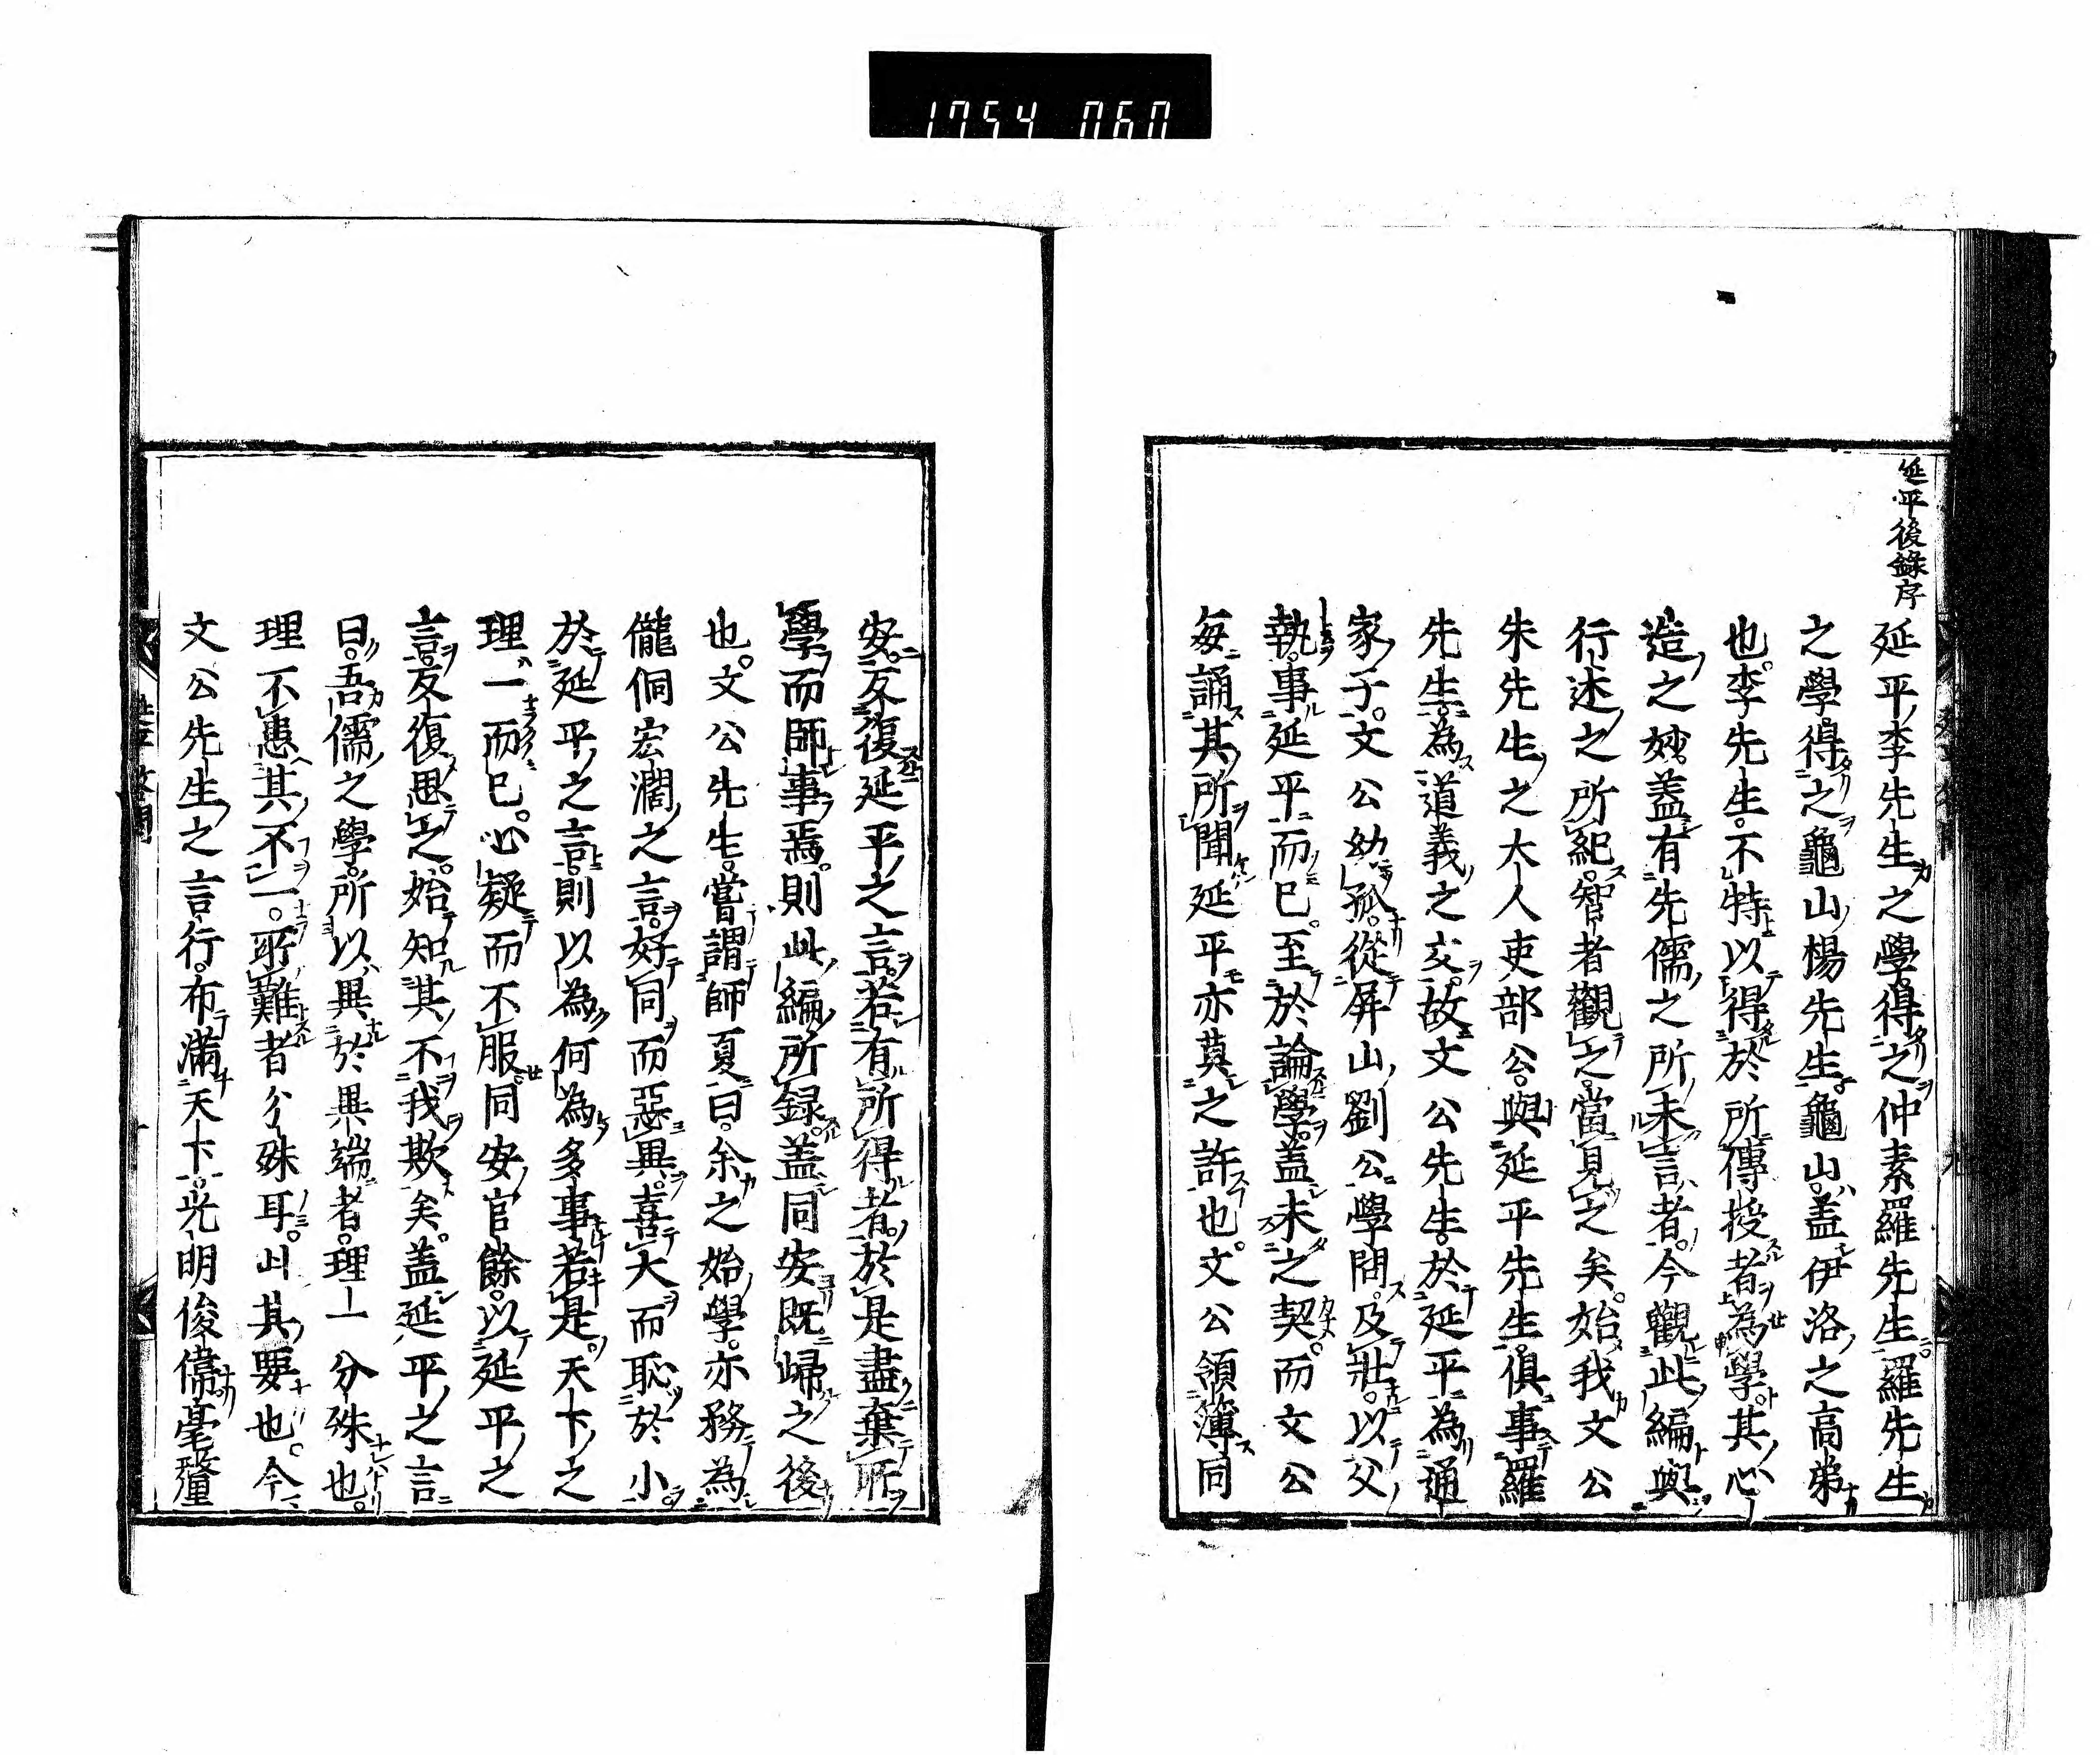 1754 060
延平後錄序
延平李先生之學得之仲素羅先生羅先生
之學得之龜山楊先生龜山蓋伊洛之高弟
也李先生不特以得於所傳授者為學其心
造之妙蓋有先儒之所未言者今觀此編與
行述之所紀智者觀之當見之矣始我文公
朱先生之大人吏部公與延平先生俱事羅
先生為道義之交故文公先生於延平為通
家子文公幼孤從屏山劉公學問及壯以父
執事延平而已至於論學蓋未之契而文公
每誦其所聞延平亦莫之許也文公領簿同
安反復延平之言若有所得者於是盡棄所
學而師事焉則此編所録蓋同安既歸之後
也文公先生嘗謂師夏曰余之始學亦務為
儱侗宏濶之言好同而惡異喜大而恥於小
於延平之言則以為何為多事若是天下之
理一而已心疑而不服同安官餘以延平之
言反復思之始知其不我欺矣蓋延平之言
曰吾儒之學所以異於異端者理一分殊也
理不患其不一所難者分殊耳此其要也今
文公先生之言行布滿天下光明俊偉毫釐